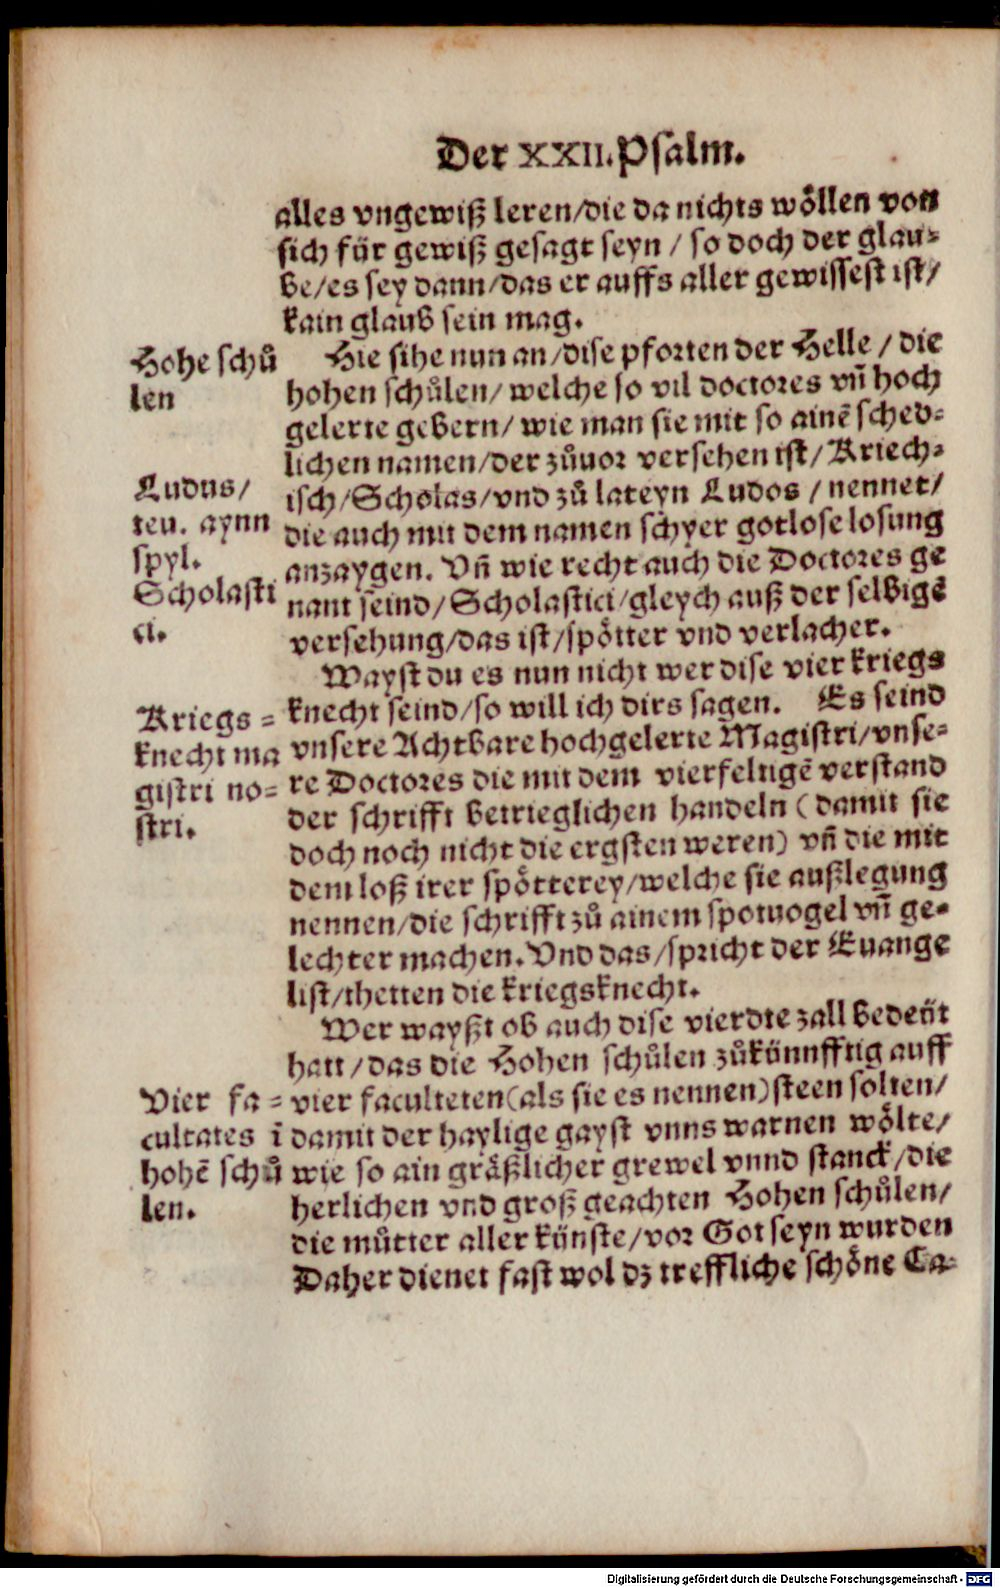 Der XXII. Psalm.
alles vngewiß leren/die da nichts wöllen von
sich für gewiß gesagt seyn / so doch der glau-
be/es sey dann/das er auffs aller gewissest ist/
kain glaub sein mag.
Hohe schů
len
Hie sihe nun an/dise pforten der Helle / die
hohen schůlen/ welche so vil doctores vñ hoch
gelerte gebern/ wie man sie mit so ainē sched-
lichen namen/der zůuor versehen ist/ Kriech-
Ludus/
teu. aynn
spyl.
Scholasti
ci.
isch/Scholas/vnd zů lateyn Ludos / nennet/
die auch mit dem namen schyer gotlose losung
anzaygen. Vñ wie recht auch die Doctores ge
nant seind/Scholastici/gleych auß der selbigē
versehung/das ist/spötter vnd verlacher.
Wayst du es nun nicht wer dise vier kriegs
Kriegs =
knecht ma
gistri no=
stri.
knecht seind/so will ich dirs sagen. Es seind
vnsere Achtbare hochgelerte Magistri/vnse-
re Doctores die mit dem vierfeltigē verstand
der schrifft betrieglichen handeln (damit sie
doch noch nicht die ergsten weren) vñ die mit
dem loß irer spötterey/welche sie außlegung
nennen/die schrifft zů ainem spotuogel vñ ge-
lechter machen. Vnd das/spricht der Euange
list/thetten die kriegsknecht.
Wer wayßt ob auch dise vierdte zall bedeüt
hatt/das die Hohen schůlen zůkünnfftig auff
Vier fa =
cultates ī
hohē schů
len.
vier faculteten(als sie es nennen)steen solten/
damit der haylige gayst vnns warnen wölte/
wie so ain gräßlicher grewel vnnd stanck/die
herlichen vnd groß geachten Hohen schůlen/
die můtter aller künste/vor Got seyn wurden
Daher dienet fast wol dz treffliche schöne Ca-
Digitalisierung gefördert durch die Deutsche Forschungsgemeinschaft - DFG